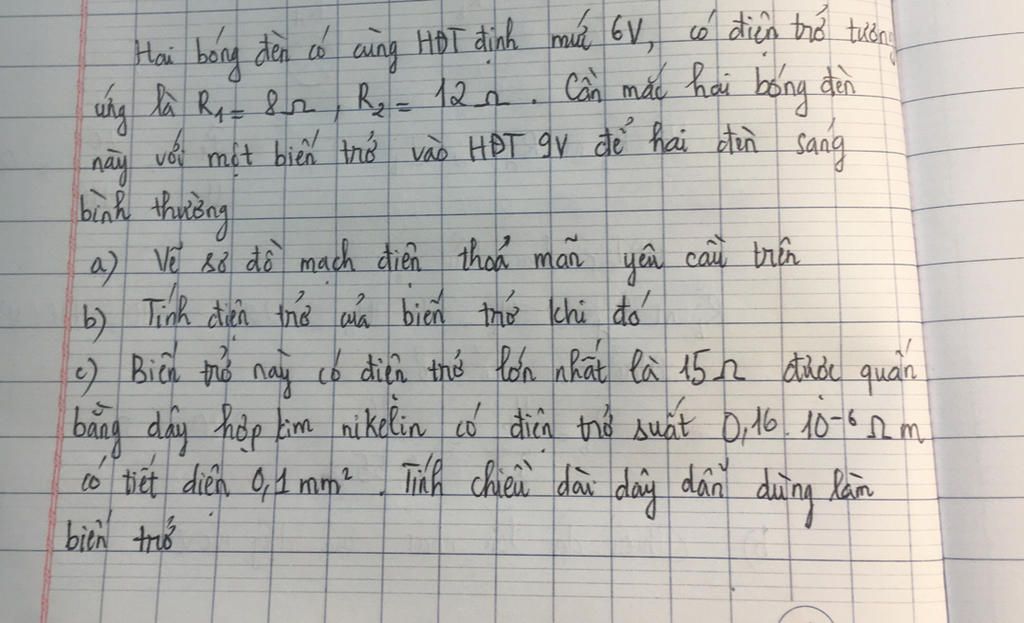 Hai bóng đèn có cùng HĐT định mức 6V, có điện trở tương
ứng là R₁ = 8Ω, R₂ = 12Ω. Cần mắc hai bóng đèn
này với một biến trở vào HĐT 9V để hai đèn sáng
bình thường
a) Vẽ sơ đồ mạch điện thoả mãn yêu cầu trên
b) Tính điện trở của biến trở khi đó
c) Biến trở này có điện trở lớn nhất là 15Ω được quấn
bằng dây hợp kim nikêlin có điện trở suất 0,16.10⁻⁶ Ωm
có tiết diện 0,1mm². Tính chiều dài dây dẫn dùng làm
biến trở